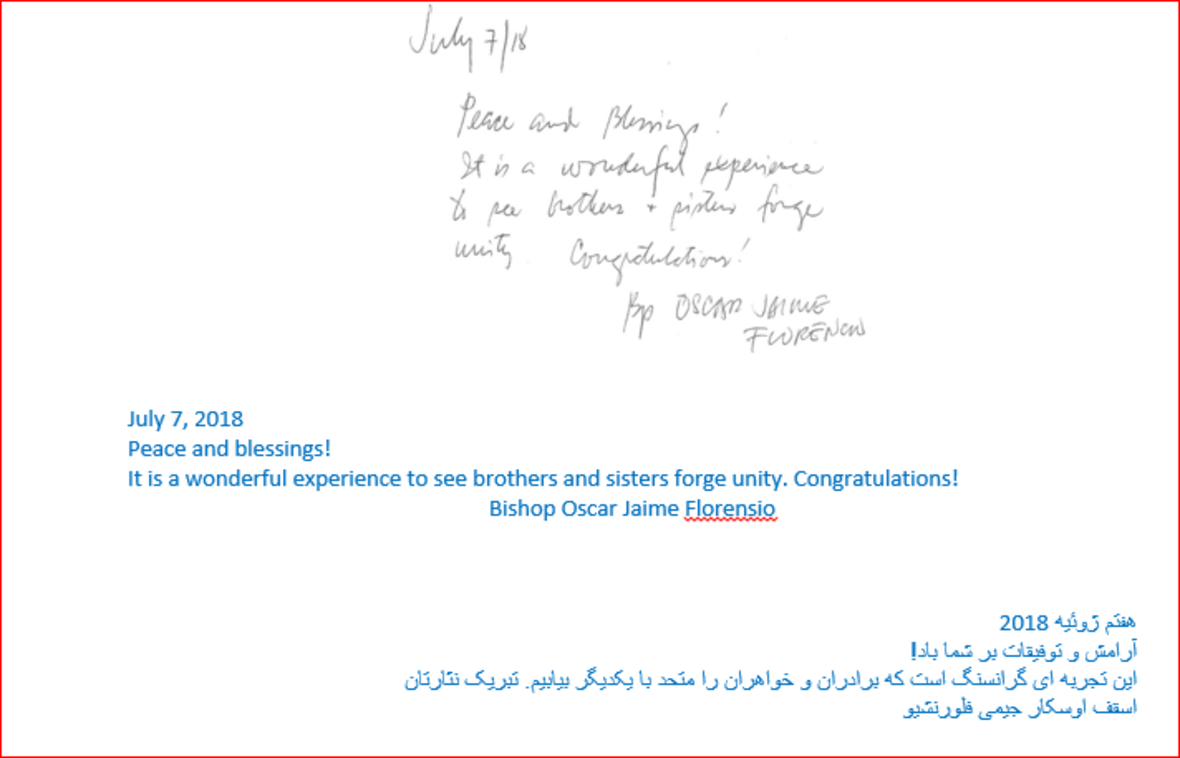 July 7/18
Peace and Blessings!
It is a wonderful experience
to see brothers + sisters forge
unity. Congratulations!
Bp OSCAR JAIME
FLORENCIO
July 7, 2018
Peace and blessings!
It is a wonderful experience to see brothers and sisters forge unity. Congratulations!
Bishop Oscar Jaime Florensio
هفتم ژوئیه 2018
آرامش و توفیقات بر شما باد!
این تجربه ای گرانسنگ است که برادران و خواهران را متحد با یکدیگر بیابیم. تبریک نثارتان
اسقف اوسکار جیمی فلورنشیو